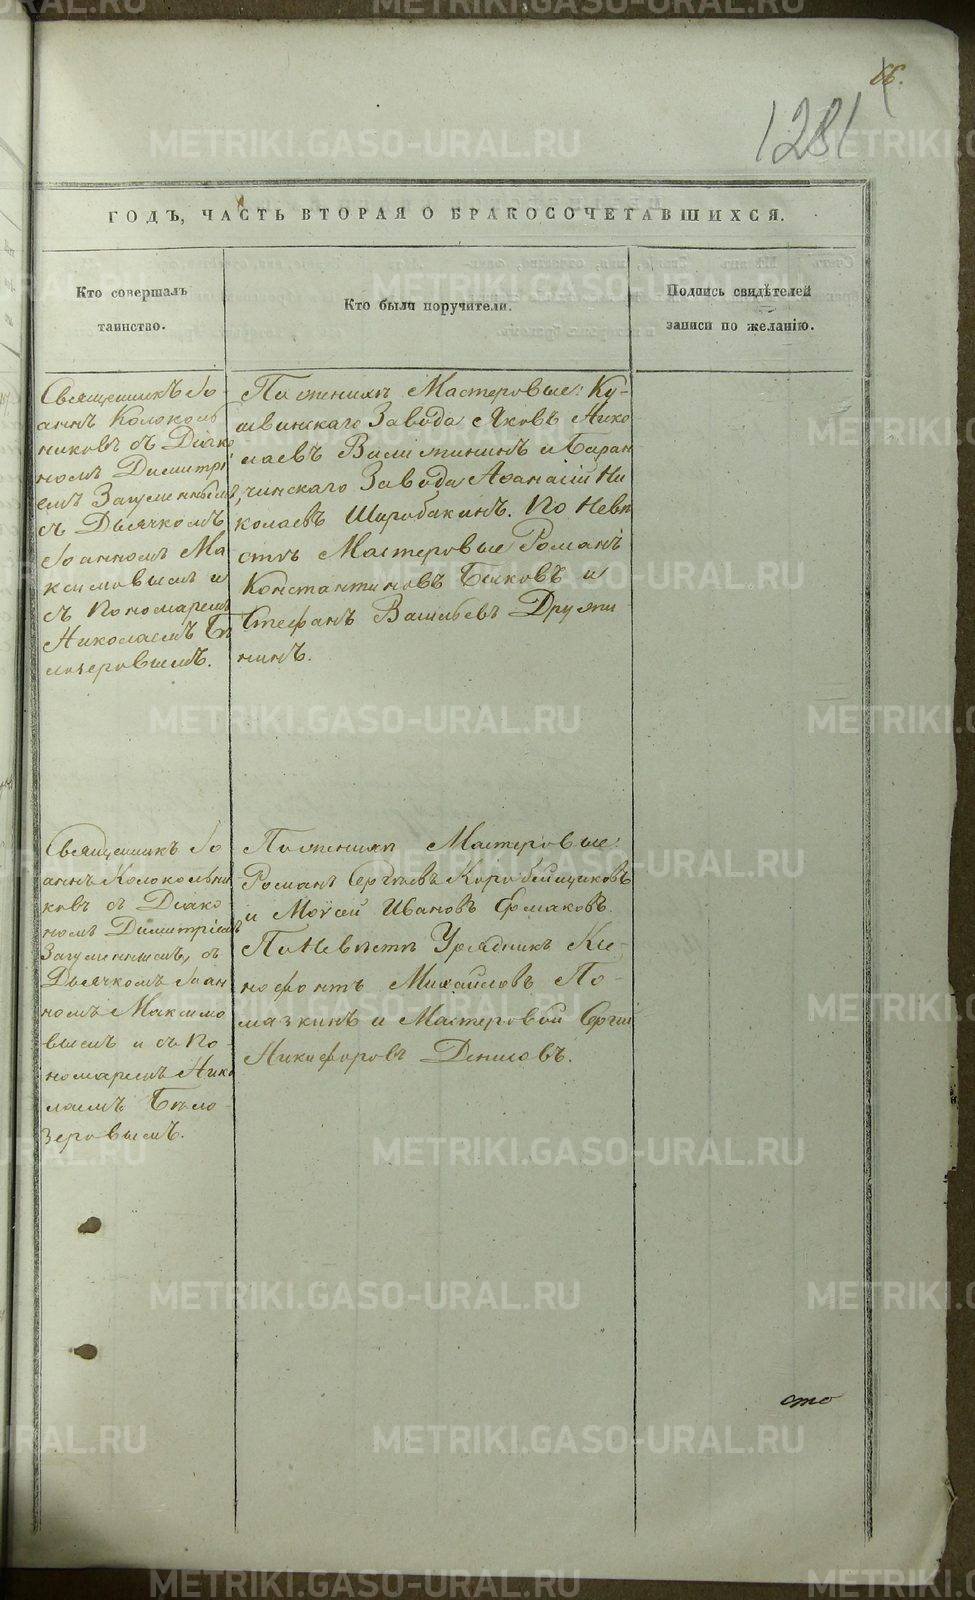 66.
1281
ГОДЪ, ЧАСТЬ ВТОРАЯ О БРАКОСОЧЕТАВШИХСЯ.
Кто совершалъ
таинство.
Кто были поручители.
Подпись свидѣтелей
записи по желанію.
Священникъ Іо
аннъ Колоколь
никовъ съ Діако
номъ Димитрі
емъ Загуменнымъ,
съ Дьячкомъ
Іоанномъ Ма
ксимовымъ и
съ Пономаремъ
Николаемъ Бѣ
лозеровымъ.
По женихѣ Мастеровые: Ку-
швинскаго Завода Яковъ Нико
лаевъ и Баран
чинскаго Завода Аѳанасій Ни
колаевъ Широбакинъ. По Невѣ
стѣ Мастеровые Романъ
Константиновъ Быковъ и
Стефанъ Васильевъ Дружи
нинъ.
Священникъ Іо
аннъ Колокольни
ковъ съ Діако
номъ Димитріемъ
Загуменнымъ, съ
Дьячкомъ Іоан
номъ Максимо
вымъ и съ По-
номаремъ Нико
лаемъ Бѣло-
зеровымъ.
По женихѣ Мастеровые:
Романъ Сергѣевъ Коробейщиковъ
и Моѵсей Ивановъ Ермаковъ.
По Невѣстѣ Урядникъ Ки-
нофонтъ Михайловъ По-
мазкинъ и Мастеровой Сергій
Никифоровъ Денисовъ.
сто
METRIKI.GASO-URAL.RU